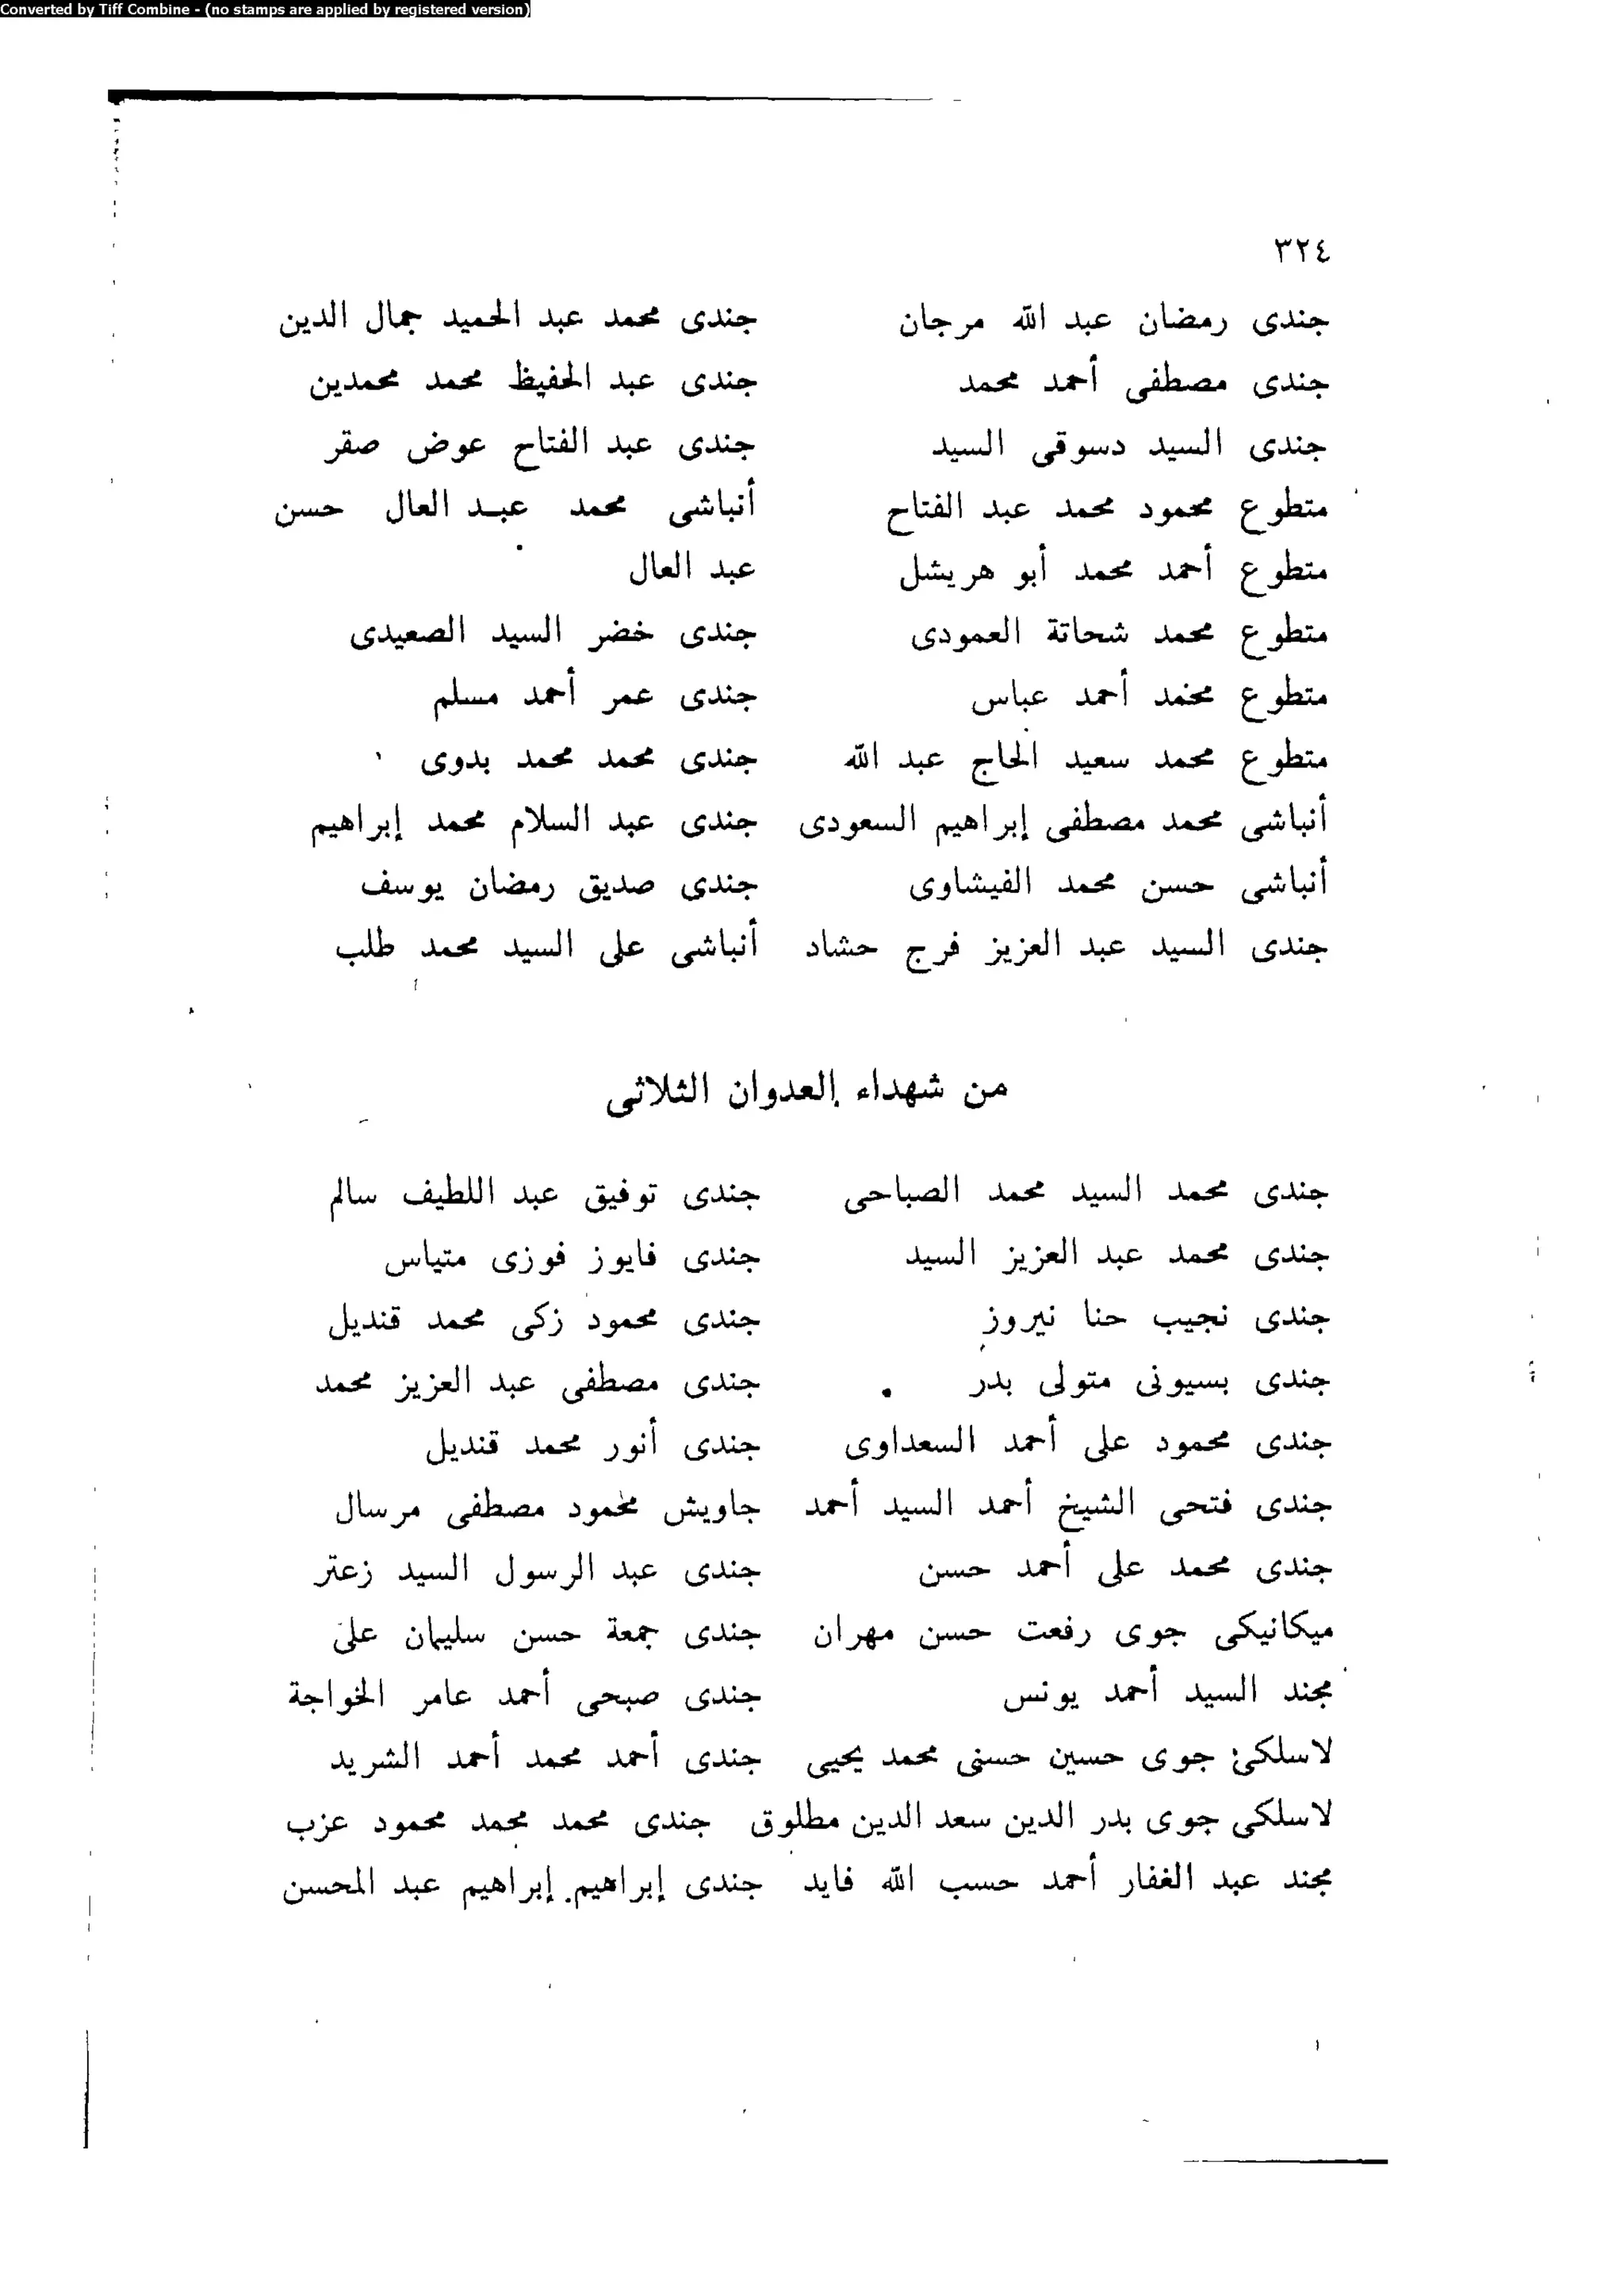 Converted by Tiff Combine - (no stamps are applied by registered version)
٣٢٤
جندى رمضان عبد الله مرجان
جندى مصطفى أحمد محمد
جندى السيد دسوقى السيد
متطوع محمود محمد عبد الفتاح
متطوع أحمد محمد أبو هريشل
متطوع محمد شحاتة العمودى
متطوع محمد أحمد عباس
متطوع محمد سعيد الحاج عبد الله
أنباشى محمد مصطفى إبراهيم السعودى
أنباشى حسن محمد الفيشاوى
جندى السيد عبد العزيز فرج حشاد
جندى محمد عبد الحميد جمال الدين
جندى عبد الحفيظ محمد محمدين
جندى عبد الفتاح عوض صقر
أنباشى محمد عبد العال حسن
عبد العال
جندى خضر السيد الصعيدى
جندى عمر أحمد مسلم
جندى محمد محمد بدوى
جندى عبد السلام محمد إبراهيم
جندى صديق رمضان يوسف
أنباشى على السيد محمد طلب
من شهداء العدوان الثلاثى
جندى محمد السيد محمد الصباحى
جندى محمد عبد العزيز السيد
جندى نجيب حنا نيروز
جندى بسيونى متولى بدر
جندى محمود على أحمد السعداوى
جندى فتحى الشيخ أحمد السيد أحمد
جندى محمد على أحمد حسن
ميكانيكى جوى رفعت حسن مهران
مجند السيد أحمد يونس
لاسلكى جوى حسين حسنى محمد يحيى
لاسلكى جوى بدر الدين سعد الدين مطلوق
مجند عبد الغفار أحمد حسب الله فايد
جندى توفيق عبد اللطيف سالم
جندى فايوز فوزى متياس
جندى محمود زكى محمد قنديل
جندى مصطفى عبد العزيز محمد
جندى أنور محمد قنديل
جاويش محمود مصطفى مرسال
جندى عبد الرسول السيد زعتر
جندى جمعة حسن سليمان على
جندى صبحى أحمد عامر الخواجة
جندى أحمد محمد أحمد الشريد
جندى محمد محمد محمود عزب
جندى إبراهيم إبراهيم عبد المحسن